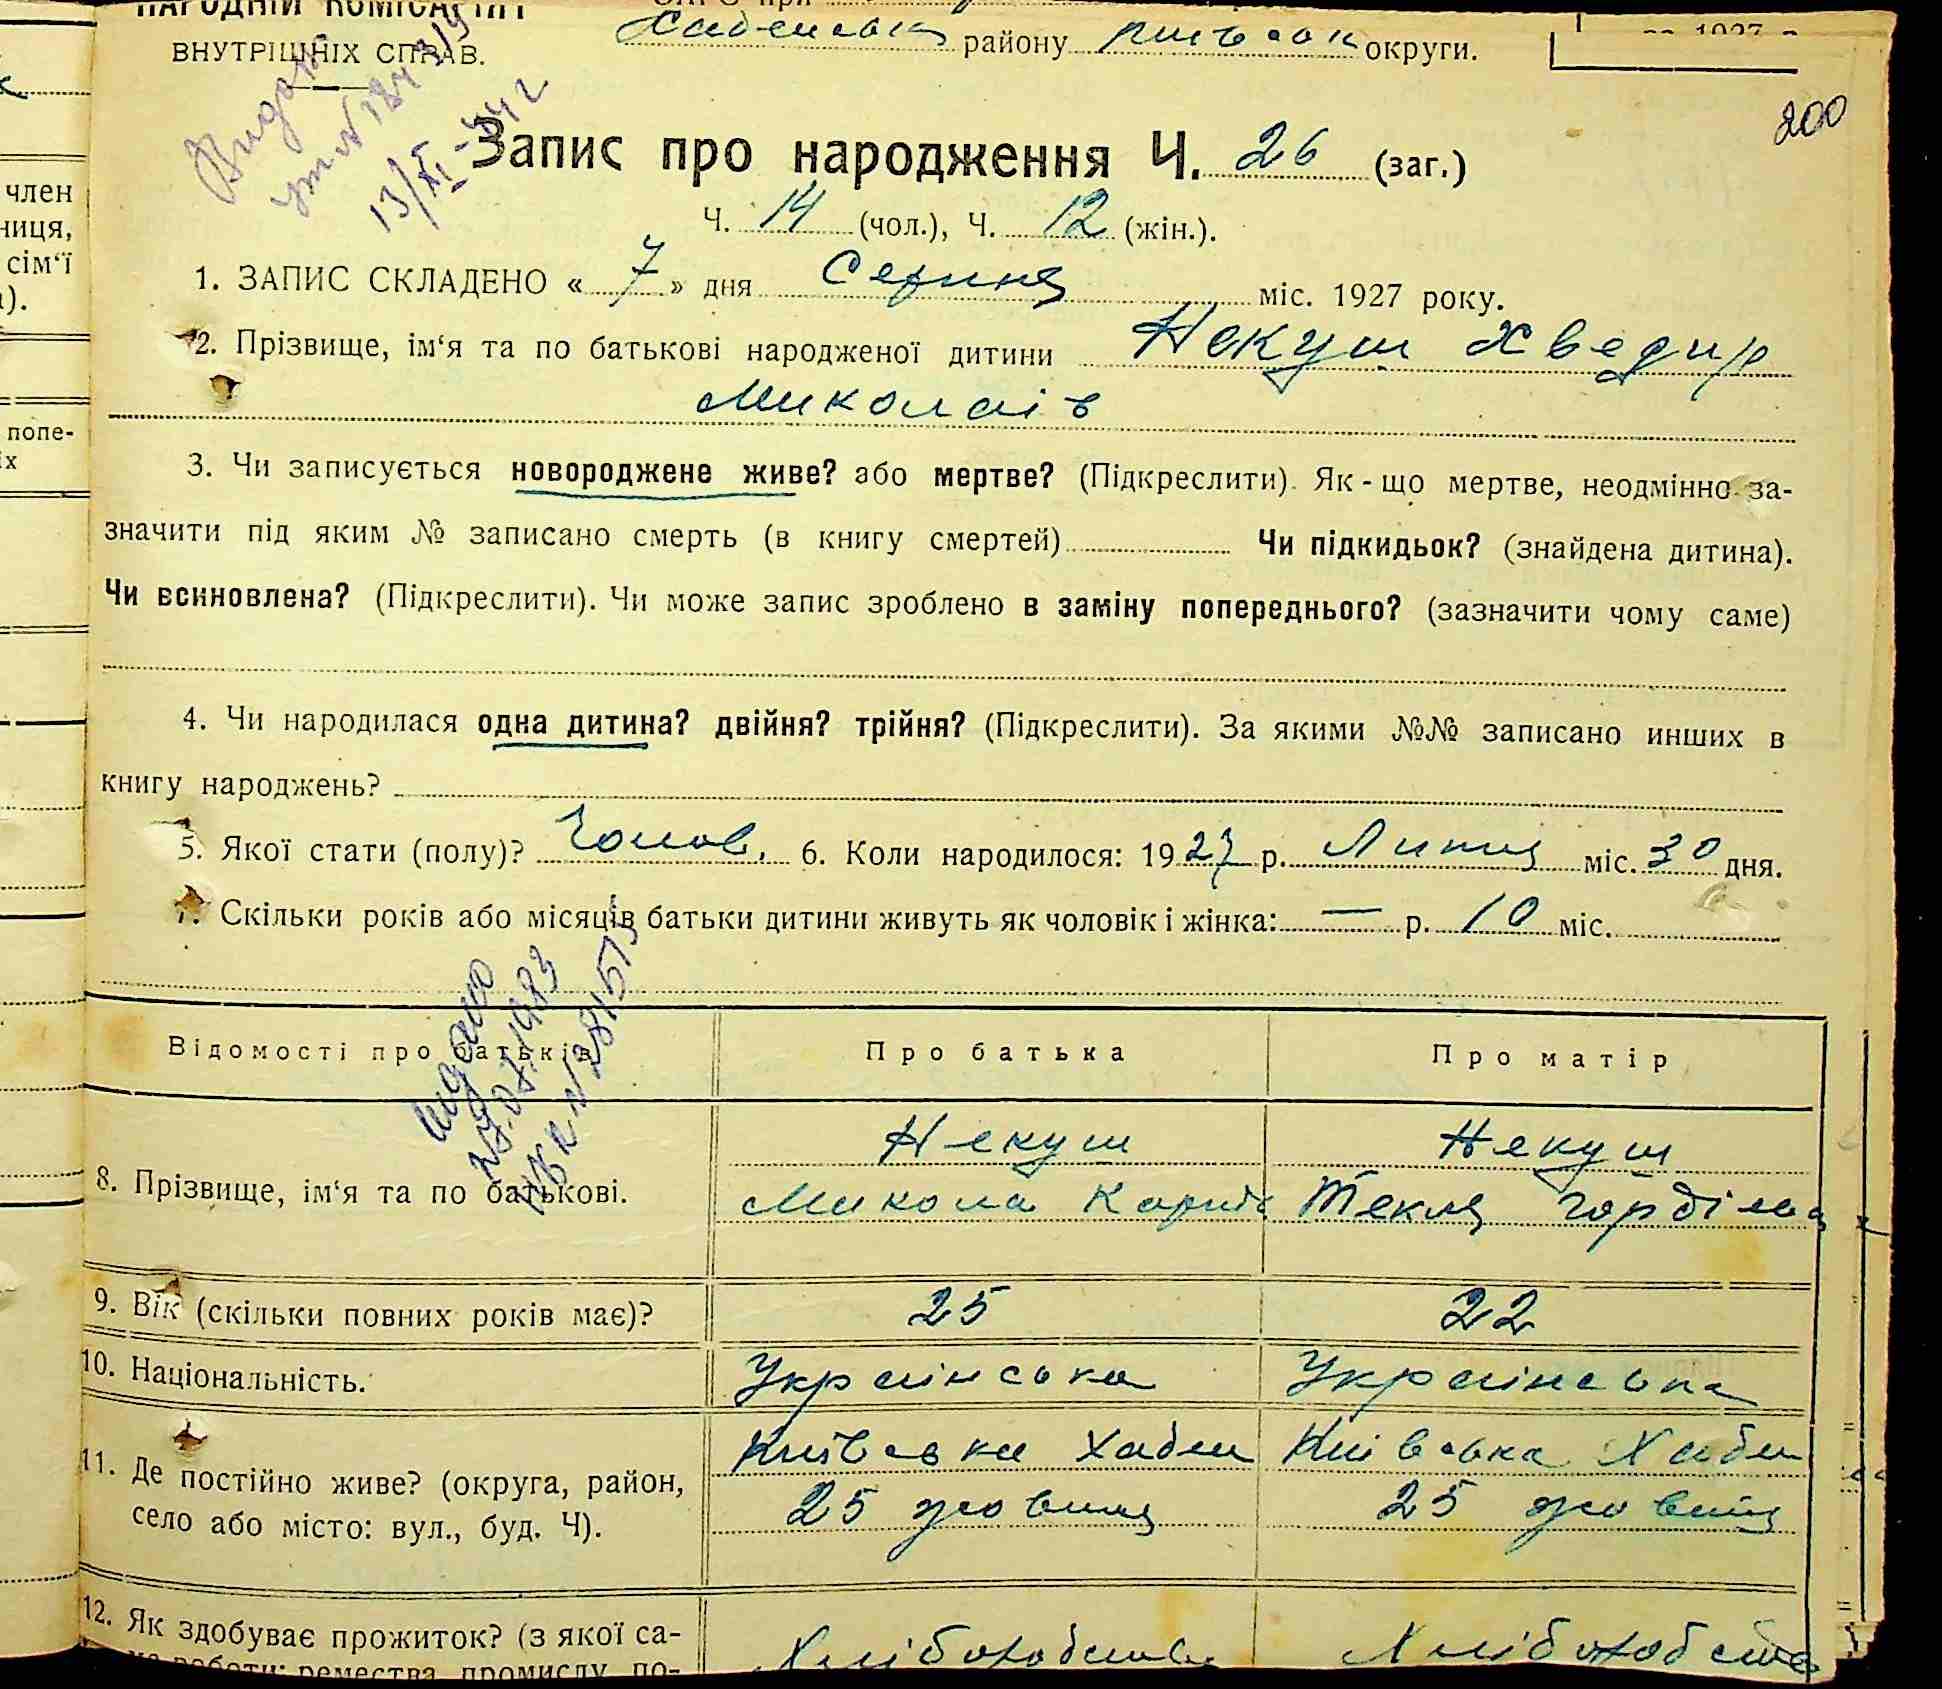 НАРОДНІЙ КОМІСАРІЯТ
ВНУТРІШНІХ СПРАВ.
району округи.
200
Запис про народження Ч. 26 (заг.)
Ч. 14 (чол.), Ч. 12 (жін.).
1. ЗАПИС СКЛАДЕНО « 7 » дня Серпня міс. 1927 року.
2. Прізвище, ім‘я та по батькові народженої дитини Некуш Хведир
Миколаїв
3. Чи записується новороджене живе? або мертве? (Підкреслити). Як-що мертве, неодмінно за-
значити під яким № записано смерть (в книгу смертей) Чи підкидьок? (знайдена дитина).
Чи всиновлена? (Підкреслити). Чи може запис зроблено в заміну попереднього? (зазначити чому саме)
4. Чи народилася одна дитина? двійня? трійня? (Підкреслити). За якими №№ записано инших в
книгу народжень?
5. Якої стати (полу)? Чолов. 6. Коли народилося: 1927 р. Липця міс. 30 дня.
7. Скільки років або місяців батьки дитини живуть як чоловік і жінка: — р. 10 міс.
Відомості про батьків Про батька Про матір
8. Прізвище, ім‘я та по батькові.
Некуш Некуш
Микола Текля
9. Вік (скільки повних років має)? 25 22
10. Національність. Українська Українська
11. Де постійно живе? (округа, район,
село або місто: вул., буд. Ч).
Київська Хабен Київська Хабен
25 жовтня 25 жовтня
12. Як здобуває прожиток? (з якої са-
Хліборобство Хліборобство
член
ниця,
сім‘ї
попе-